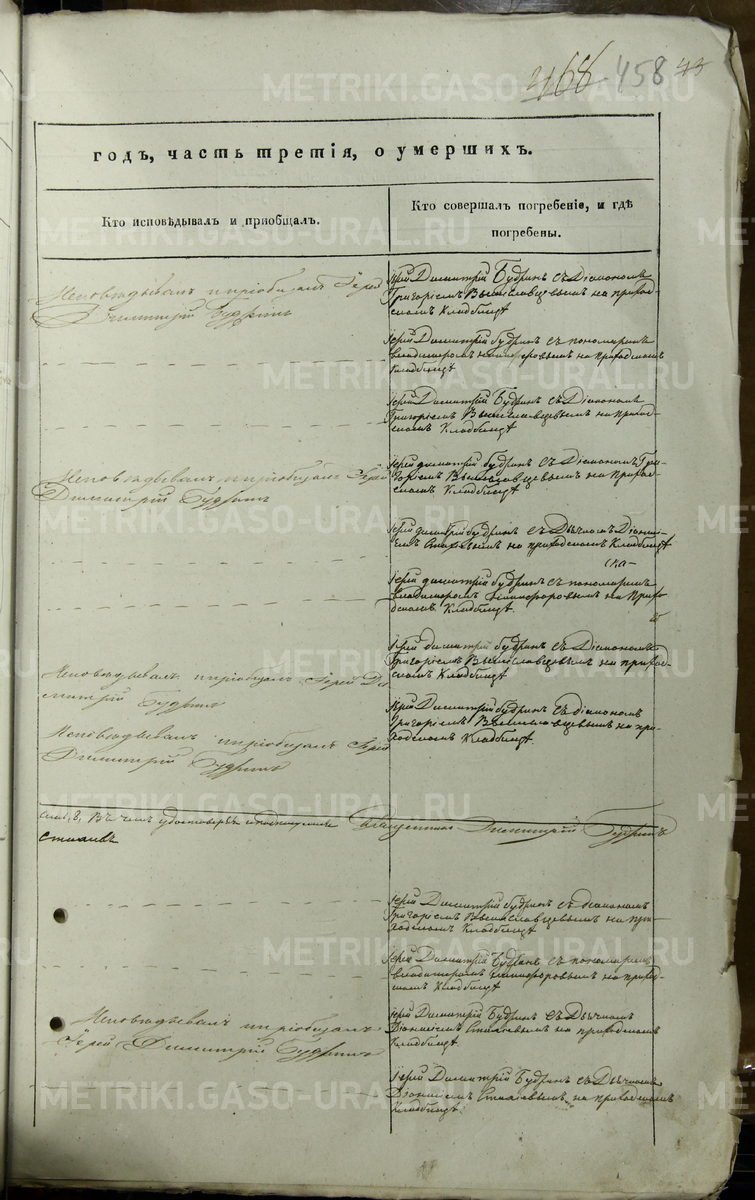 468 458
годъ, часть третія, о умершихъ.
Кто исповѣдывалъ и приобщалъ.
Кто совершалъ погребеніе, и гдѣ
погребены.
Исповѣдывалъ и пріобщалъ Іерей
Димитрій Будринъ
Іерей Димитрій Будринъ съ Діакономъ
Григоріемъ Вышеславцевымъ на приход-
скомъ Кладбищѣ
Іерей Димитрій Будринъ съ пономаремъ
Владимиромъ Никифоровымъ на приходскомъ
Кладбищѣ
Іерей Димитрій Будринъ съ Діакономъ
Григоріемъ Вышеславцевымъ на приход-
скомъ Кладбищѣ
Исповѣдывалъ и пріобщалъ Іерей
Димитрій Будринъ
Іерей Димитрій Будринъ съ Діакономъ Гри-
горіемъ Вышеславцевымъ на приход-
скомъ Кладбищѣ
Іерей Димитрій Будринъ съ Дьячкомъ Діони-
сіемъ на приходскомъ Кладбищѣ
Іерей Димитрій Будринъ съ пономаремъ
Владимиромъ Никифоровымъ на прихо-
дскомъ Кладбищѣ.
Іерей Димитрій Будринъ съ Діакономъ
Григоріемъ Вышеславцевымъ на приход-
скомъ Кладбищѣ
Исповѣдывалъ и пріобщалъ Іерей Ди-
митрій Будринъ
Іерей Димитрій Будринъ съ Діакономъ
Григоріемъ Вышеславцевымъ на при-
ходскомъ Кладбищѣ.
Исповѣдывалъ и пріобщалъ Іерей
Димитрій Будринъ
Въ чемъ Священникъ Димитрій Будринъ
Іерей Димитрій Будринъ съ Діакономъ
Григоріемъ Вышеславцевымъ на при-
ходскомъ Кладбищѣ
Іерей Димитрій Будринъ съ пономаремъ
Владимиромъ Никифоровымъ на приход-
скомъ Кладбищѣ
Исповѣдывалъ и пріобщалъ
Іерей Димитрій Будринъ
Іерей Димитрій Будринъ съ Дьячкомъ
Діонисіемъ на приходскомъ
Кладбищѣ.
Іерей Димитрій Будринъ съ Дьячкомъ
Діонисіемъ на приходскомъ
Кладбищѣ.
METRIKI.GASO-URAL.RU